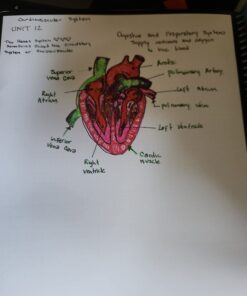 Cardiovascular System
UNIT 12
The Human System
System or Cardiovascular
Digestive and Respiratory Systems
Supply nutrients and oxygen
to the blood
Superior
Vena Cava
Aorta
pulmonary Artery
Right
Atrium
Left Atrium
pulmonary vein
Left Ventricle
Inferior
Vena Cava
Right
Ventricle
Cardiac
muscle